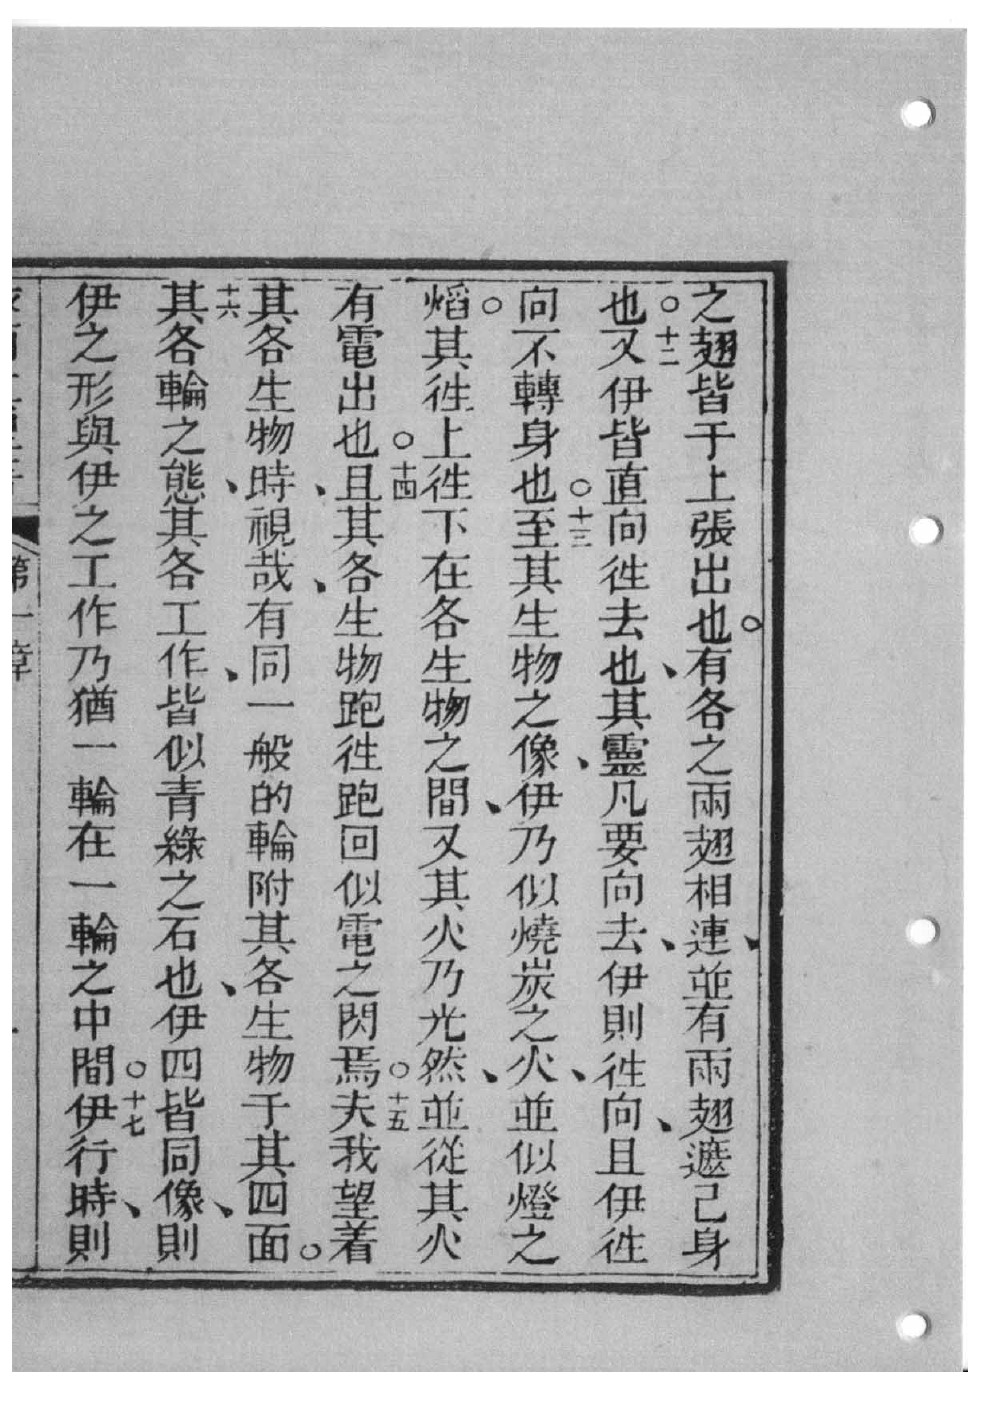 之翅皆于上張出也。有各之兩翅相連、並有兩翅遮己身
也。十二又伊皆直向徃去也、其靈凡要向去、伊則徃向、且伊徃
向不轉身也。十三至其生物之像、伊乃似燒炭之火、並似燈之
熖。其徃上徃下在各生物之間、又其火乃光然、並從其火
有電出也。十四且其各生物跑徃跑回似電之閃焉。十五夫我望着
其各生物時、視哉、有同一般的輪附其各生物于其四面。
十六其各輪之態、其各工作、皆似青綠之石也、伊四皆同像、則
伊之形與伊之工作乃猶一輪在一輪之中間。十七伊行時、則
第一章